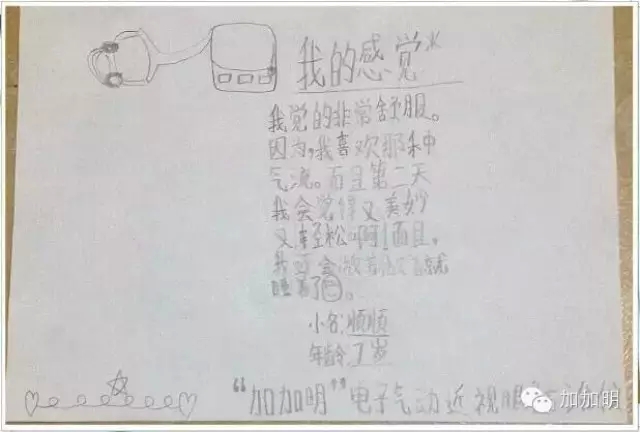 我的感觉
我觉的非常舒服。
因为,我喜欢那种
气流。而且第二天
我会觉得又美妙
又轻松啊!而且,
我还会做着做着就
睡着了。
小名:顺顺
年龄:7岁
“加加明”电子气动近视眼
加加明